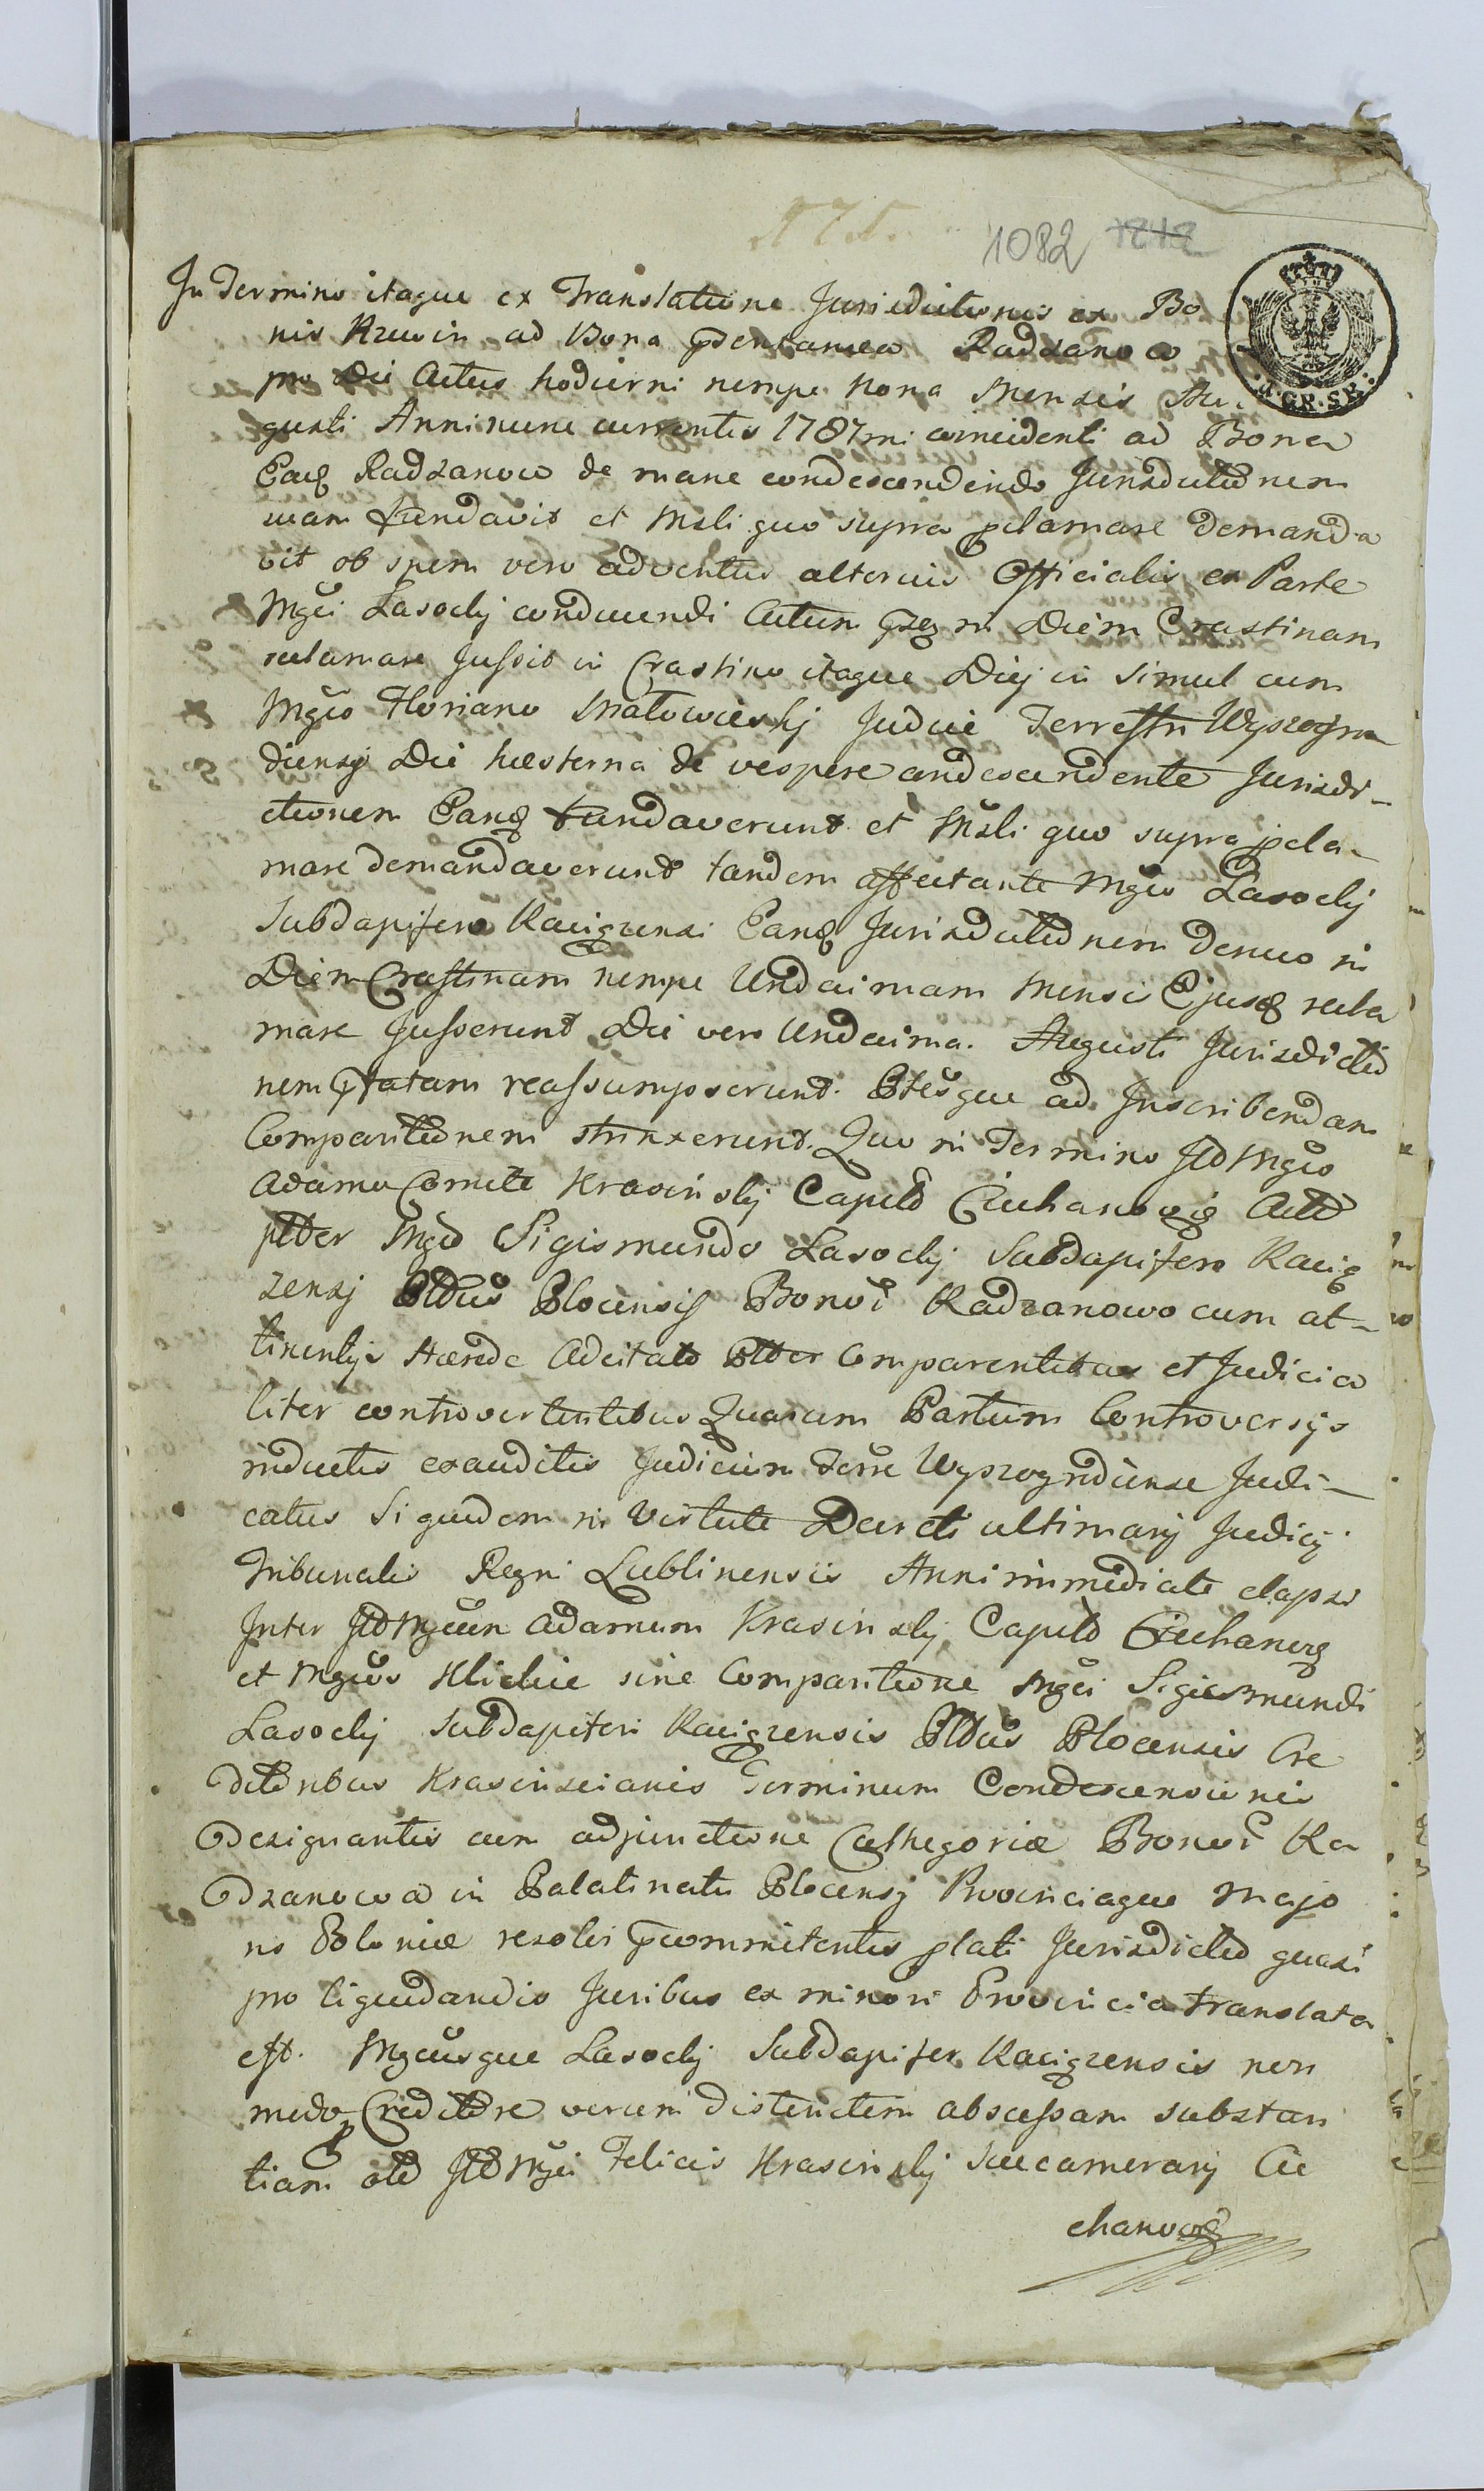 1082 1212
In Termino itaque ex Translatione Jurisdictionis ex Bo
nis Krzwin ad Bona Radzanow
pro Die Actus hodierni nempe nona Mensis Au
gusti Anni nunc currentis 1787mi coincidenti ad Bona
Eadq Radzanow de mane condescendendo Jurisdictionem
suam fundavit et Mtli quo supra pclamare demanda
vit ob spem vero adventus alterius Officialis ex Parte
Mgci Lasockj conducendi Actum in Diem Crastinam
reclamare Jussit in Crastino itaque Diej in simul cum
Mgco Floriano Małowieskj Judice Terrestri Wyszogro
diensj Die hesterna de vespere condescendente Jurisdi-
ctionem Eandq fundaverunt et Mtli quo supra pcla-
mare demandaverunt tandem affectante Mgco Lasockj
Subdapifero Raciązensi Eandq Jurisdictionem denuo in
Diem Crastinam nempe Undecimam Mensis Ejusdq recla
mare Jusserunt Die vero Undecima Augusti Jurisdictio
nem pfatam reassumpserunt Ptesque ad Inscribendam
Comparitionem strinxerunt. Quo in Termino Illo Mgco
Adamo Comite Krasinskj Capito Ciechanovg Acto
pltter Mgco Sigismundo Lasockj Subdapifero Racią
zensj Pltbus Plocensis Bonor Radzanowo cum at-
tinentijs Hærede Adcitato Pltter Comparentibus et Judicia
liter controvertentibus Quarum Partium Controversijs
inductis exauditis Judicium Terre Wyszogrodiense Judi-
catus Siquidem in Virtute Decreti ultimarij Judicij
Tribunalis Regni Lublinensis Anni immediate elapsi
Inter Illo Mgcum Adamum Krasinskj Capito Ciechanovg
et Mgcos Klickie sine Comparitione Mgci Sigismundi
Lasockj Subdapiferi Raciązensis Pltbus Plocensis Cre
ditoribus Krasinscianis Terminum Condescensionis
Designantis cum adjunctione Cathegoriæ Bonor Ra
dzanowo in Palatinatu Plocensj Provinciaque Majo
ris Poloniæ resolvi pcommitentis plati Jurisdictio quasi
pro liquidandis Juribus ex minori Provincia translata
est. Mgcusque Lasockj Subdapifer Raciązensis non
modo Creditore verum distinctem abscessam substan
tiam olim Illo Mgci Felicis Krasinskj Succamerarij Cie
chanovg